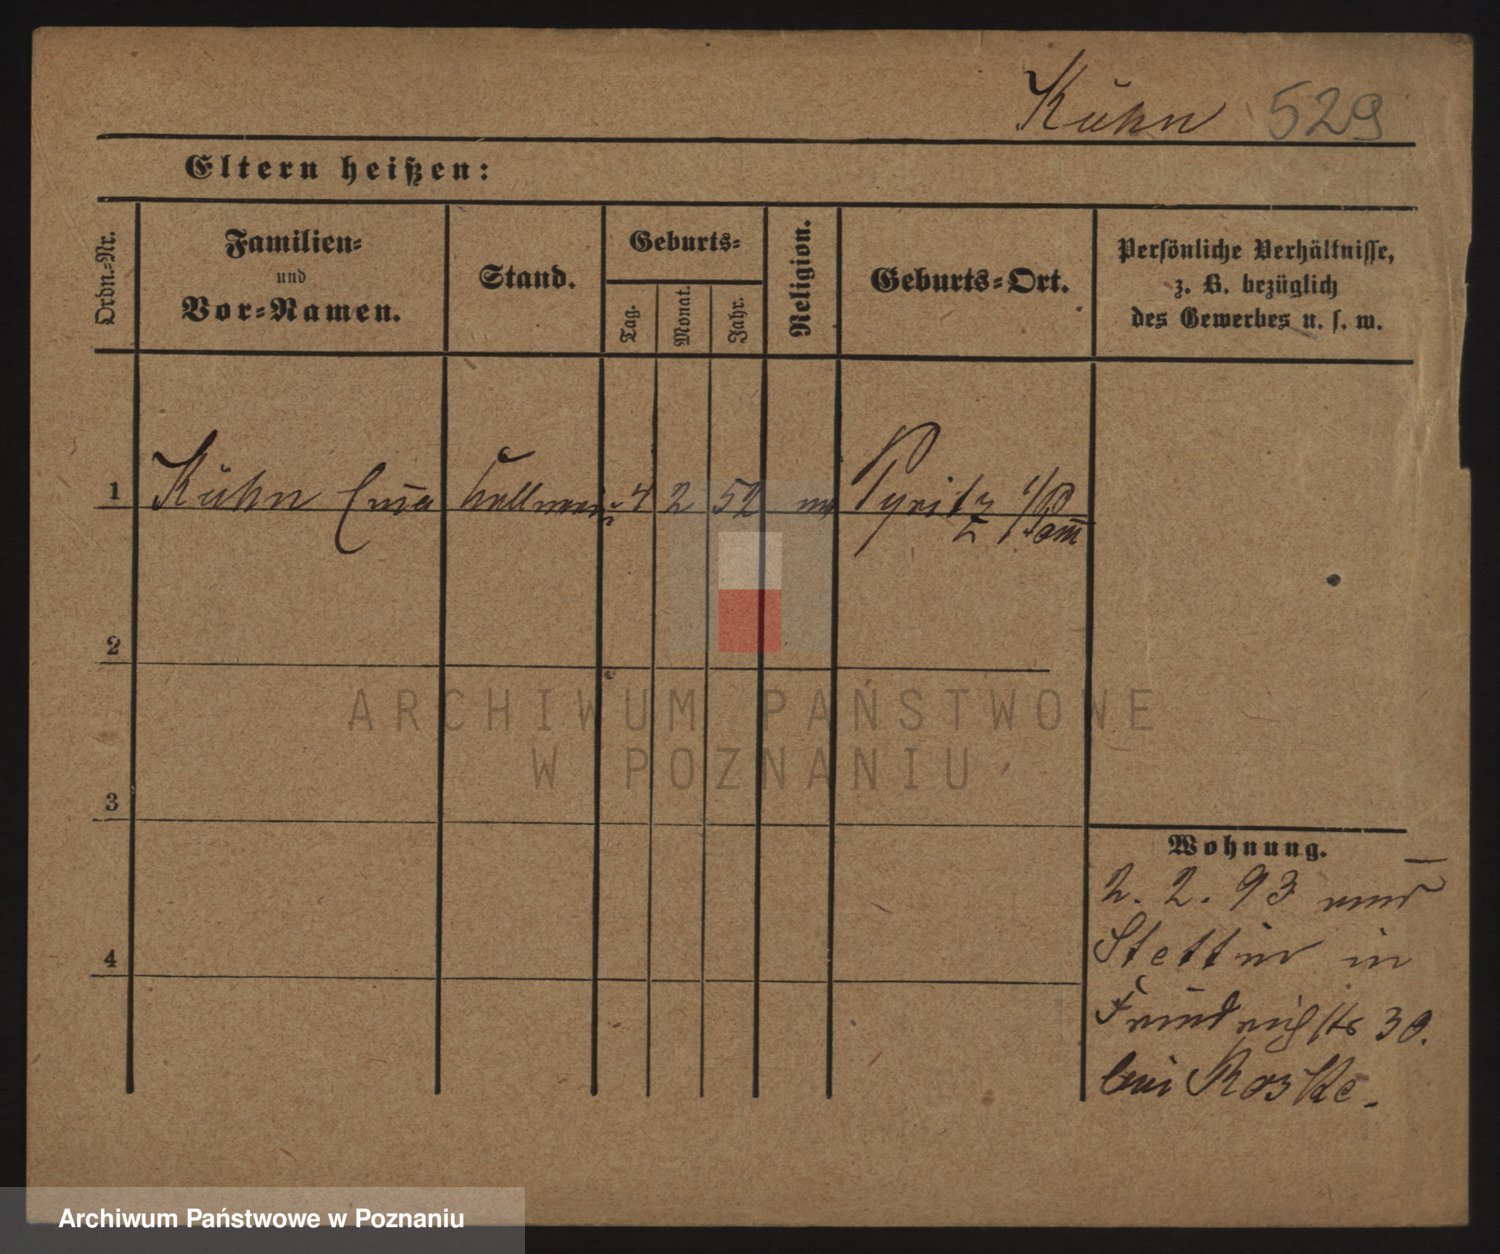 Kühn 529
Eltern heißen:
Ordn.-Nr.
Familien-
und
Vor-Namen.
Stand.
Geburts-
Tag.
Monat.
Jahr.
Religion.
Geburts-Ort.
Persönliche Verhältnisse,
z. B. bezüglich
des Gewerbes u. s. w.
1 Kühn 4 2 52 Pyritz i/Pom̄
2
3
4
Wohnung.
2. 2. 93
Stettin in
Friedrichstr 30.
bei Roske.
ARCHIWUM PAŃSTWOWE
W POZNANIU
Archiwum Państwowe w Poznaniu